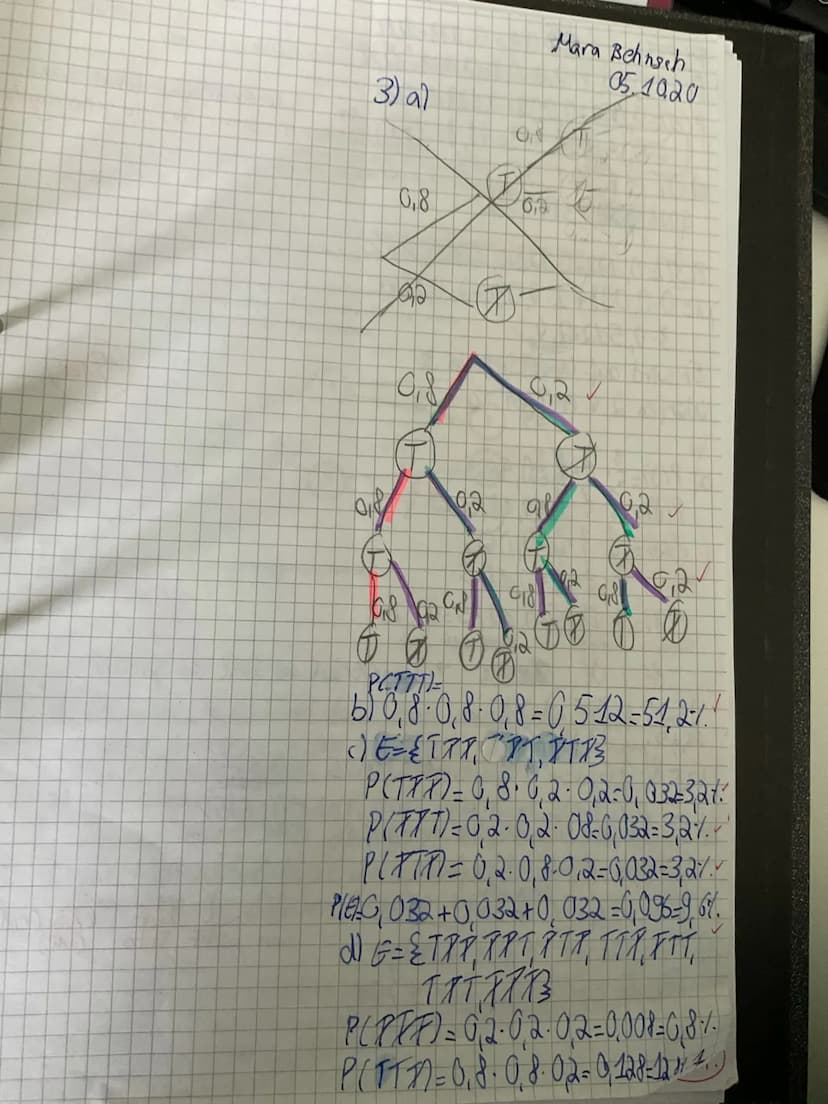 Mara Behnsch
05.10.20
3) a)
0,8 T
T
0,8
0,2
0,2
T̶
0,8 0,2
T T̶
0,8 0,2 0,8 0,2
T T̶ T T̶
0,8 0,2 0,8 0,2 0,8 0,2 0,8 0,2
T T̶ T T̶ T T̶ T T̶
P(TTT)=
b) 0,8·0,8·0,8=0,512=51,2%.
c) E={TT̶T̶, T̶T̶T, T̶TT̶}
P(TT̶T̶)=0,8·0,2·0,2=0,032=3,2%.
P(T̶T̶T)=0,2·0,2·08=0,032=3,2%.
P(T̶TT̶)=0,2·0,8·0,2=0,032=3,2%.
P(E)=0,032+0,032+0,032=0,096=9,6%.
d) E={TT̶T̶, T̶T̶T, T̶TT̶, TTT̶, T̶TT,
TT̶T, T̶T̶T̶}
P(T̶T̶T̶)=0,2·0,2·0,2=0,008=0,8%.
P(TTT̶)=0,8·0,8·0,2=0,128=12